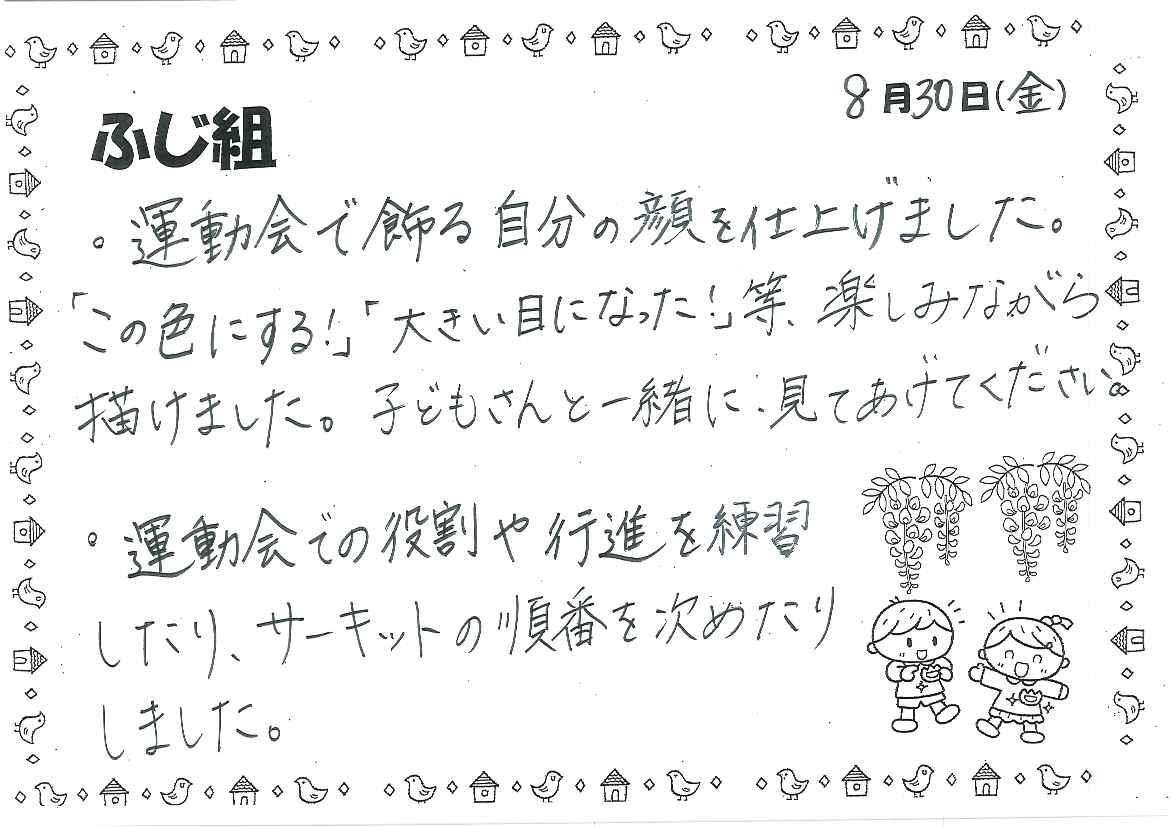 8月30日(金)
ふじ組
。運動会で飾る自分の顔を仕上げました。
「この色にする!」「大きい目になった!」等、楽しみながら
描けました。子どもさんと一緒に、見てあげてください。
。運動会での役割や行進を練習
したり、サーキットの順番を次めたり
しました。